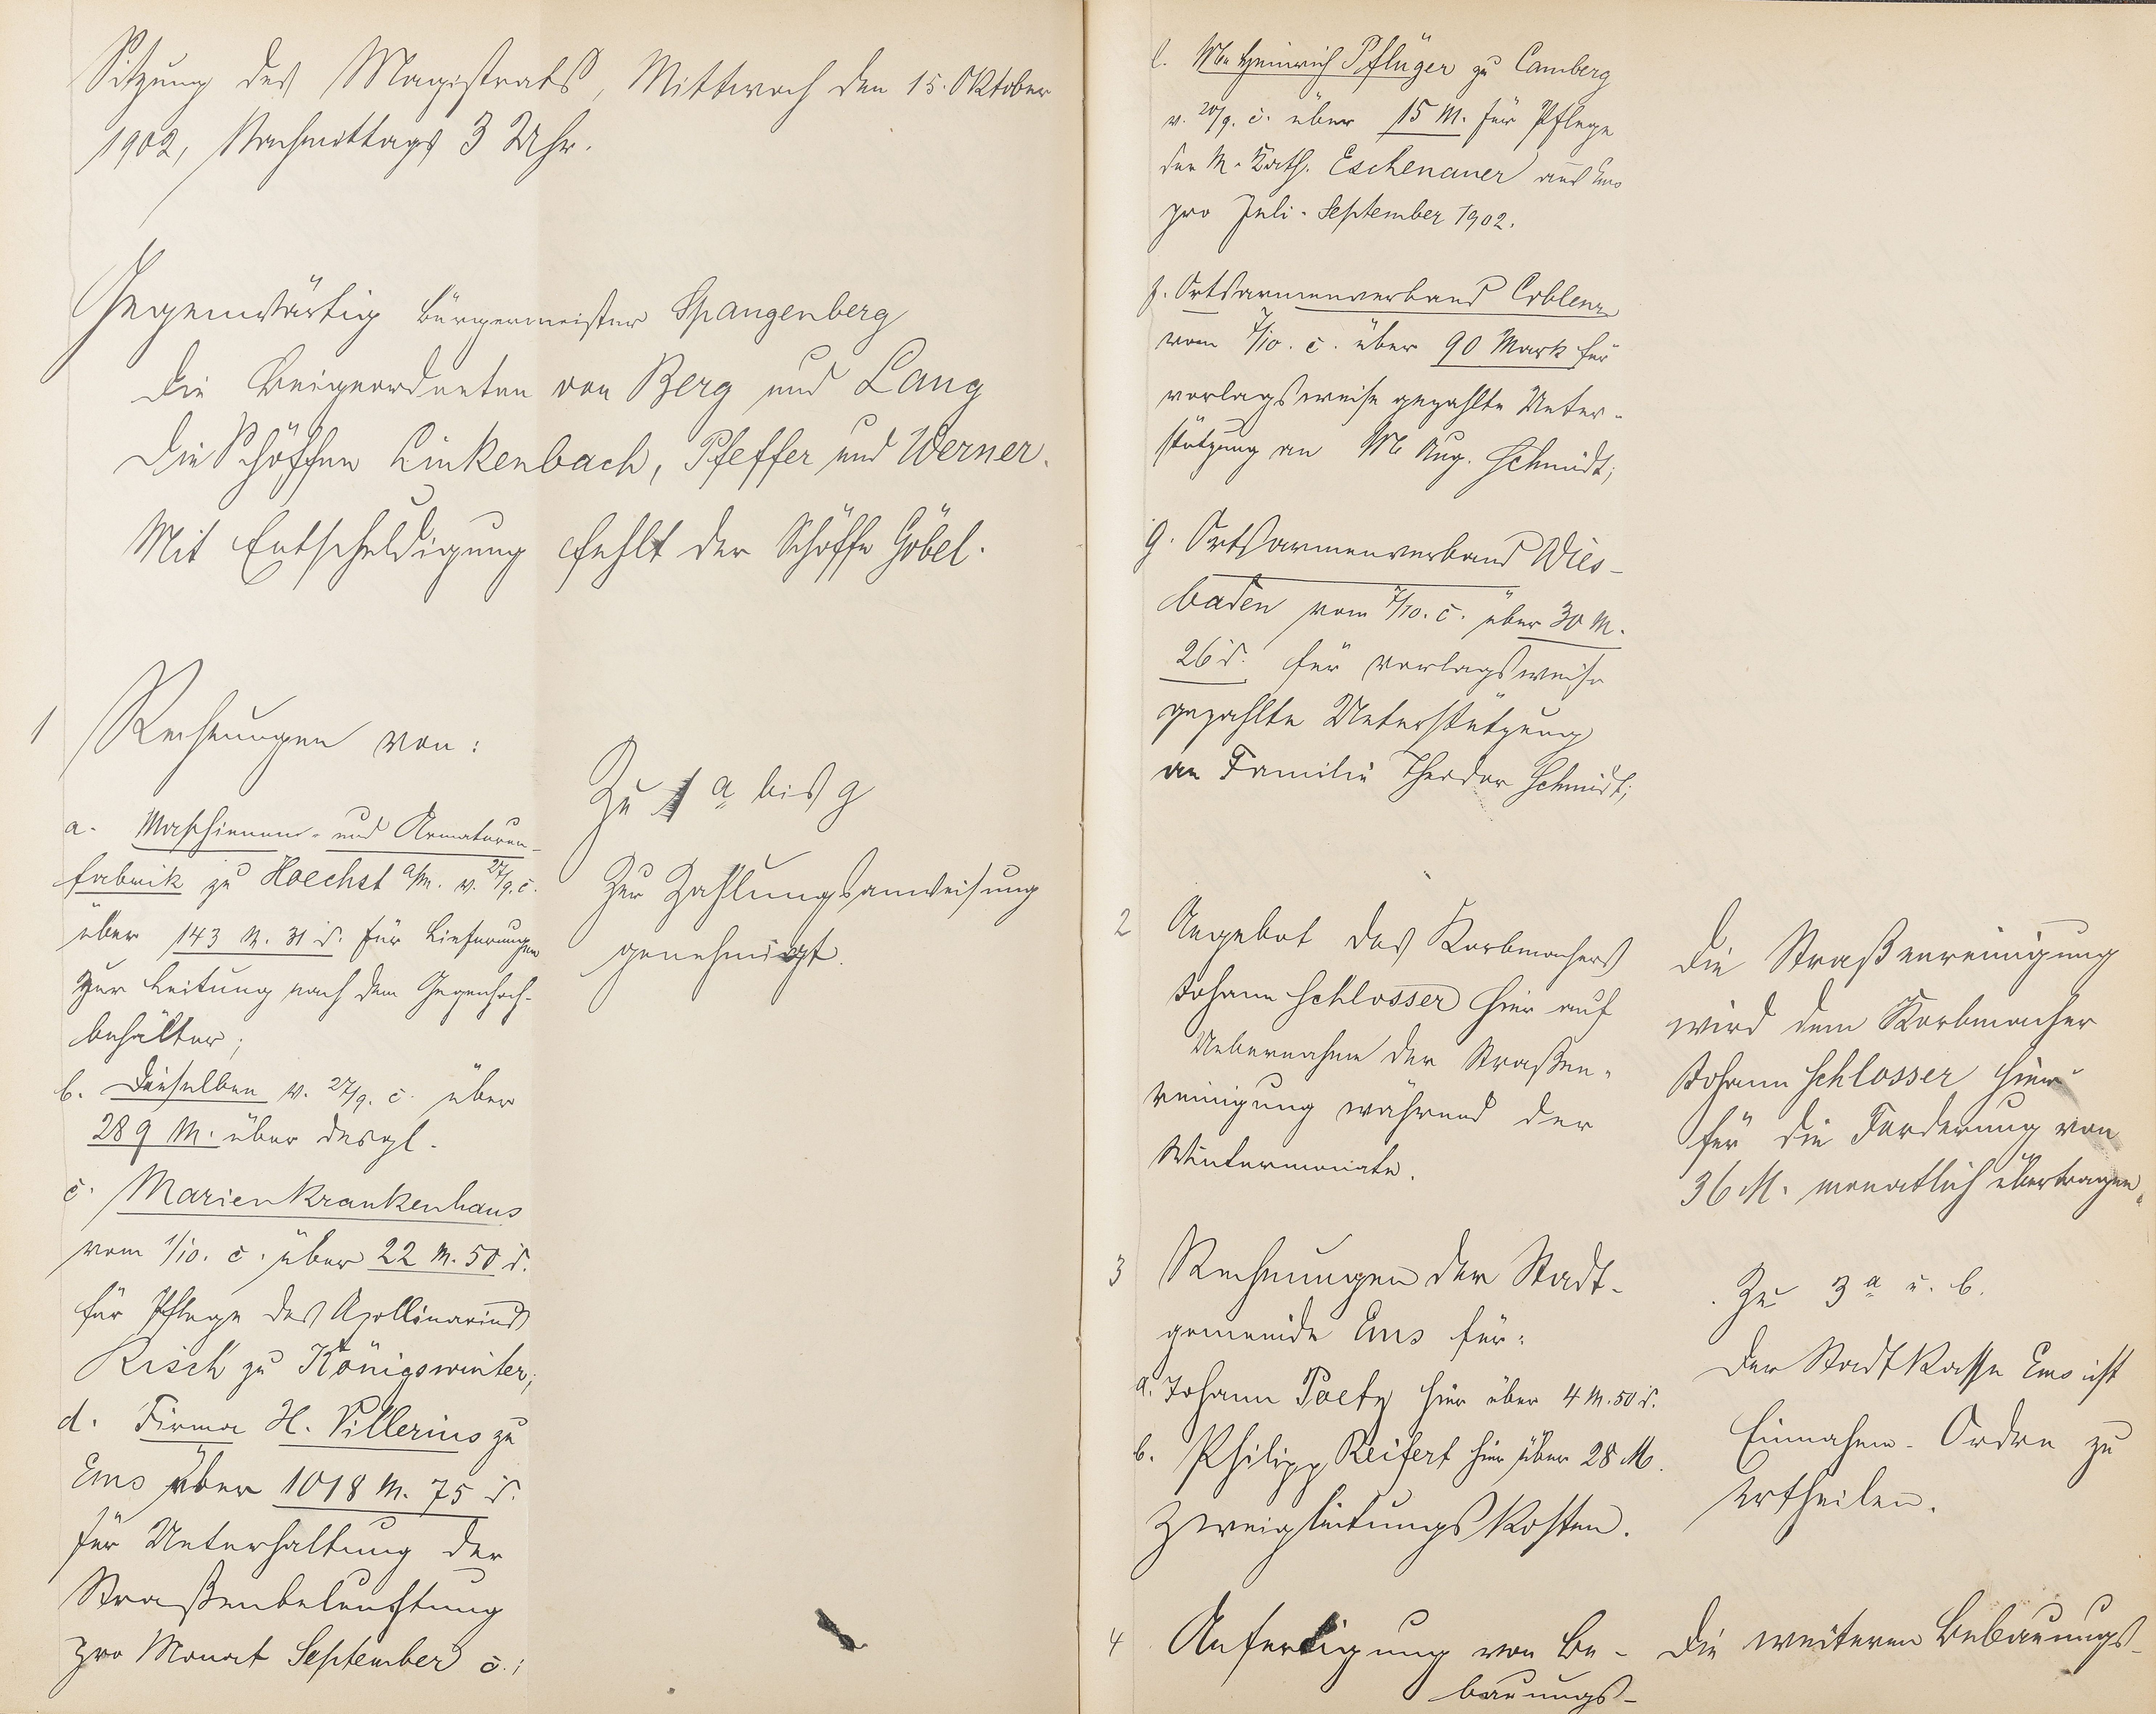 Sitzung des Magistrats, Mittwoch den 15. Oktober
1902, Nachmittags 3 Uhr.
Gegenwärtig Bürgermeister Spangenberg
die Beigeordneten von Berg und Lang
die Schöffen Linkenbach, Pfeffer und Werner.
Mit Entschuldigung fehlt der Schöffe Göbel.
1 Rechnungen von:
a. Maschienen- und Armaturen-
fabrik zu Hoechst a/m. v. 27/9. c.
über 143 M. 31 d. für Lieferungen
zur Leitung nach dem Gegenhoch-
behälter;
b. Dieselben v. 27/9. c. über
289 M. über desgl.
c. Marienkrankenhaus
vom 1/10. c. über 22 M. 50 d.
für Pflege des Apollinarius
Risch zu Königswinter;
d. Firma H. Villerius zu
Ems über 1018 M. 75 d.
für Unterhaltung der
Straßenbeleuchtung
pro Monat September c.;
Zu 1 a bis g
Zur Zahlungsanweisung
genehmigt.
Heinrich Pflüger zu Camberg
v. 20/9. c. über 15 M. für Pflege
der M. Kath. Eschenauer aus Ems
pro Juli-September 1902.
f. Ortsarmenverband Coblenz
vom 7/10. c. über 90 Mark für
vorlagsweise gezahlte Unter-
stützung an Aug. Schmidt;
g. Ortsarmenverband Wies-
baden vom 7/10. c. über 30 M.
26 d. für vorlagsweise
gezahlte Unterstützung
an Familie Theodor Schmidt;
2 Angebot des Korbmachers
Johann Schlosser hier auf
Uebernahme der Straßen-
reinigung während der
Wintermonate.
Die Straßenreinigung
wird dem Korbmacher
Johann Schlosser hier
für die Forderung von
36 M. monatlich übertragen.
3 Rechnungen der Stadt-
gemeinde Ems für:
a. Johann Paety hier über 4 M. 50 d.
b. Philipp Reifert hier über 28 M.
Zweigleitungskosten.
Zu 3 a u. b.
Der Stadtkasse Ems ist
Einnahme-Ordre zu
ertheilen.
4 Anfertigung von Be-
bauungs-
Die weiteren Bebauungs-